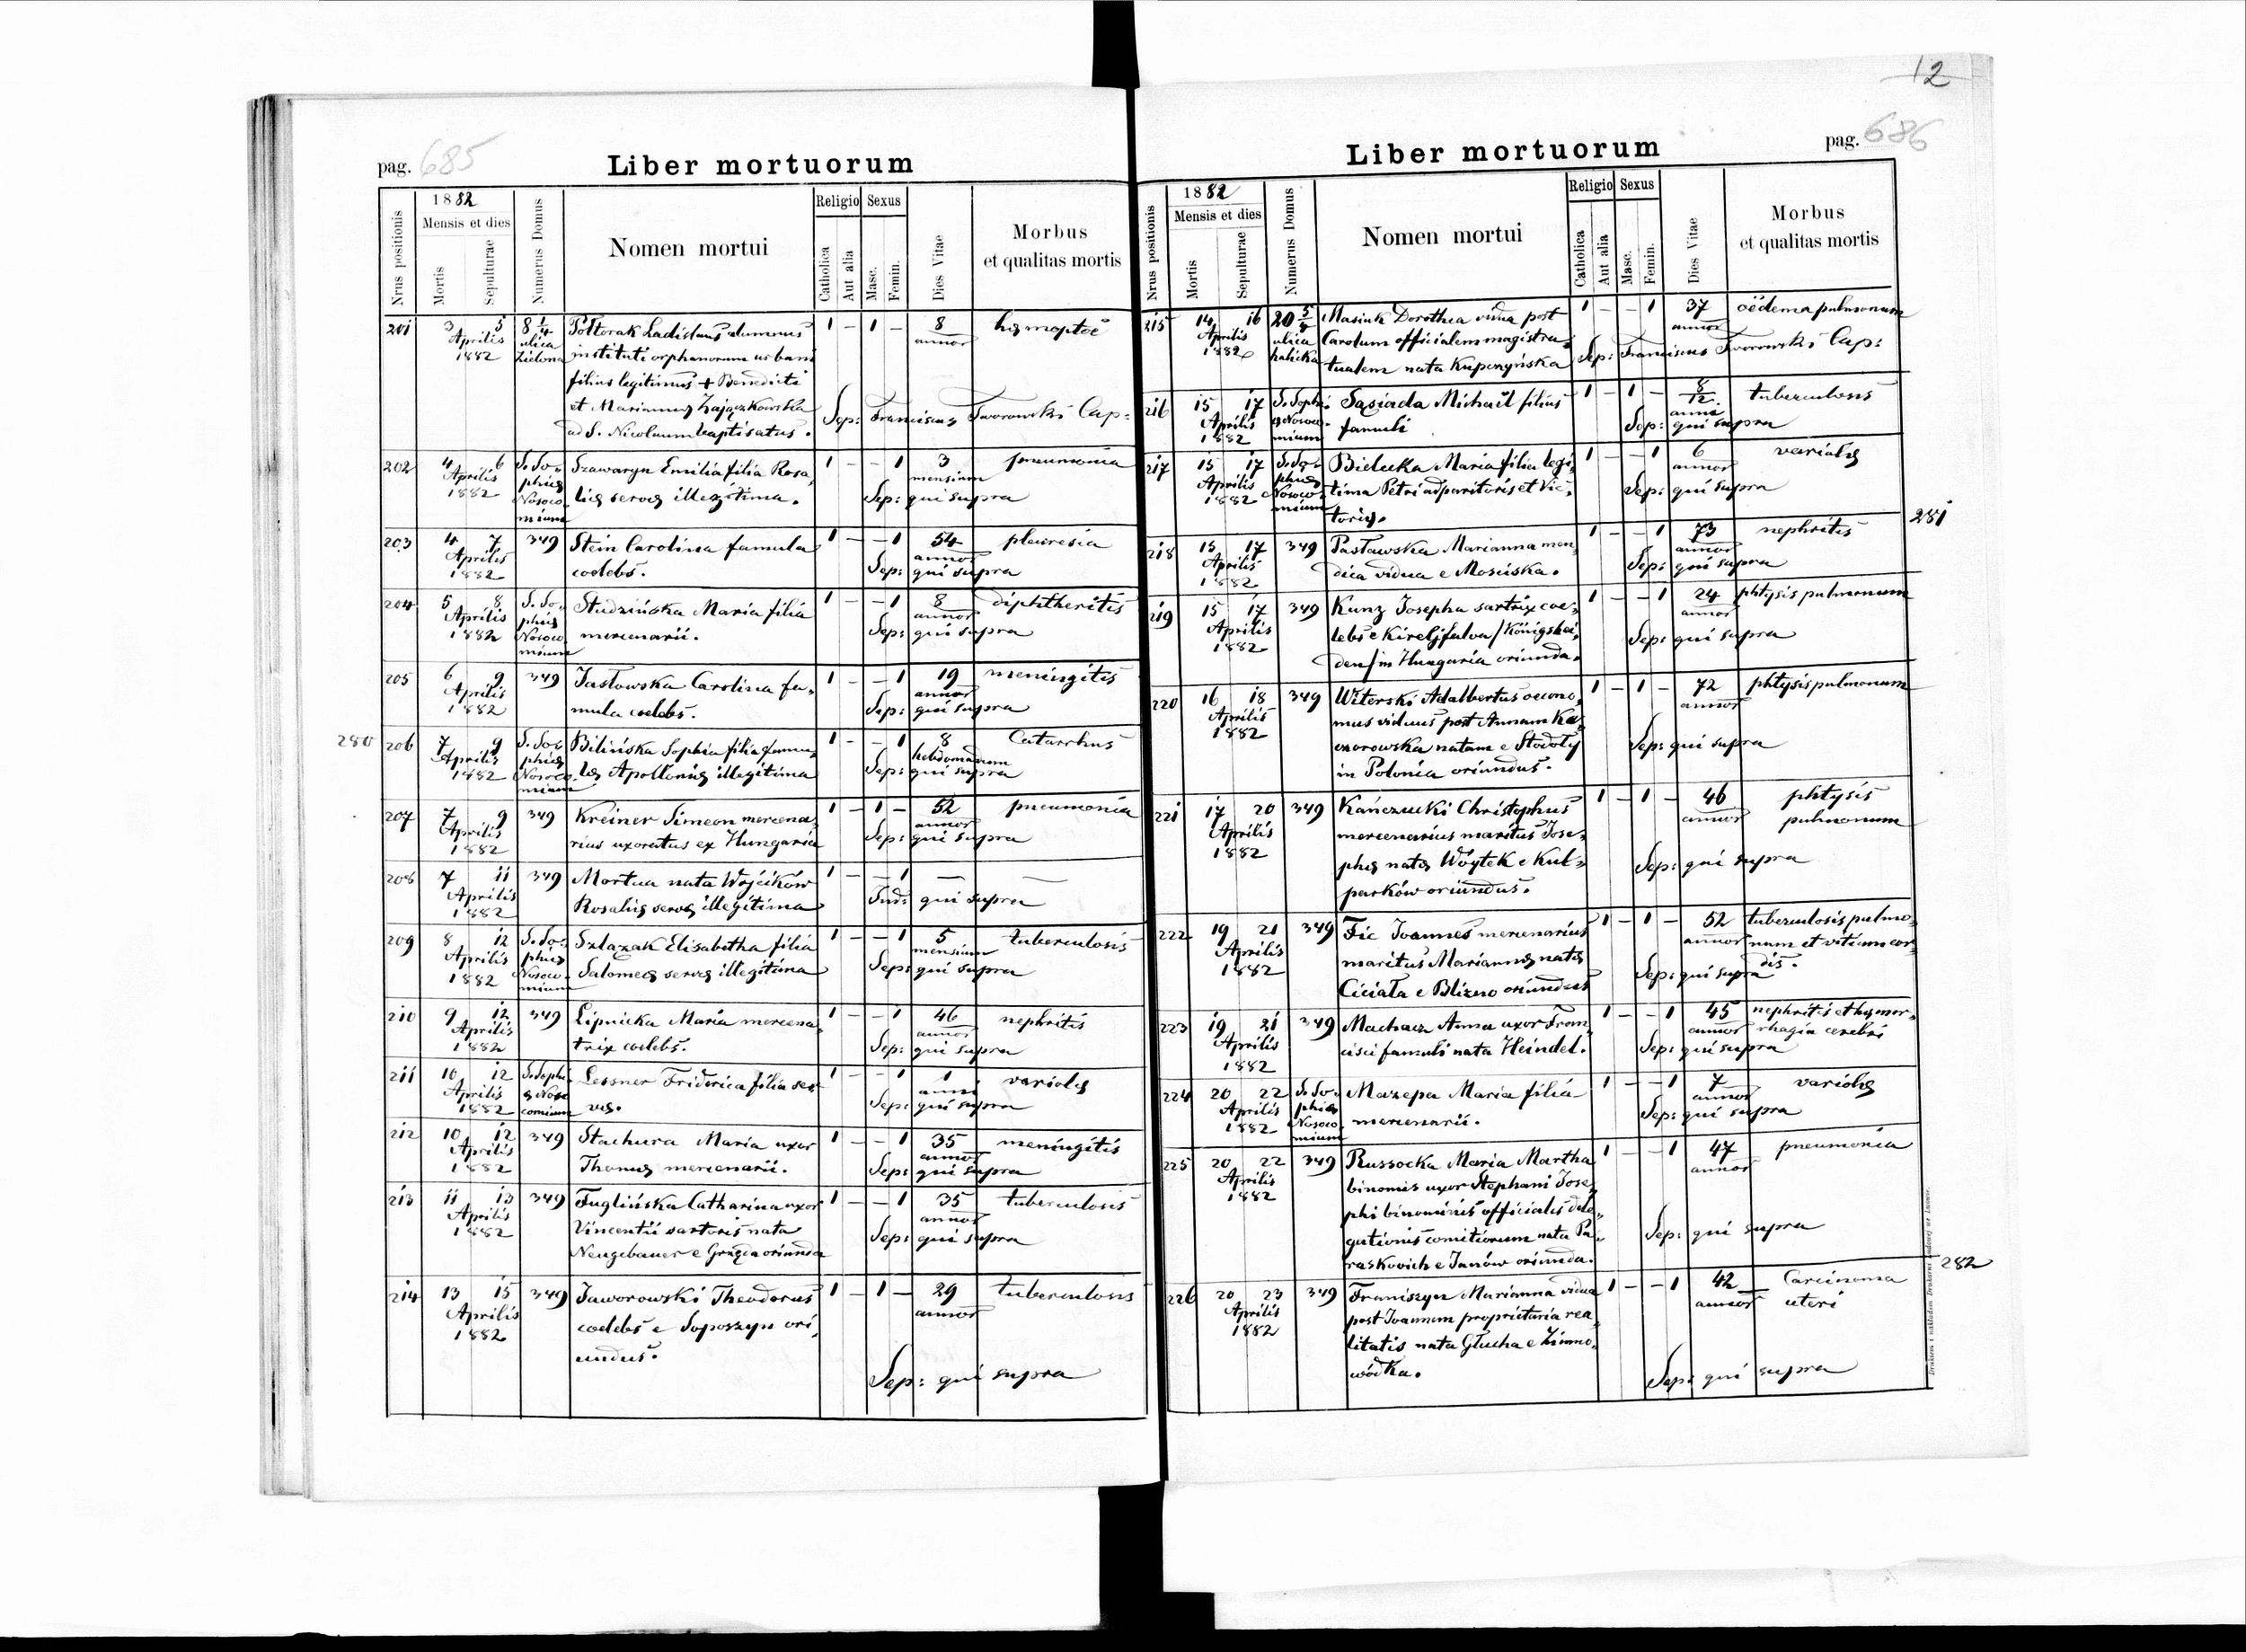 pag. 685
Liber mortuorum
Nrus positionis
1882
Mensis et dies
Mortis
Sepulturae
Numerus Domus
Nomen mortui
Religio
Catholica
Aut alia
Sexus
Masc.
Femin.
Dies Vitae
Morbus
et qualitas mortis
201 3 5 8 1/4 Półtorak Ladislaus alumnus 1 – 1 – 8 hęmoptoë
Aprilis ulica instituti orphanorum urbani annor
1882 Zielona filius legitimus + Benedicti
et Mariannę Zajączkowska Sep: Franciscus Tworowski Cap:
ad S. Nicolaum baptisatus.
202 4 6 S. So- Szawaryn Emilia filia Rosa, 1 – – 1 3 pneumonia
Aprilis phię lię servę illegitima. mensium
1882 Nosoco Sep: qui supra
mium
203 4 7 349 Stein Carolina famula 1 – – 1 54 pleuresia
Aprilis coelebs. annor
1882 Sep: qui supra
204 5 8 S. So- Studzińska Maria filia 1 – – 1 8 diphtheritis
Aprilis phię mercenarii. annor
1882 Nosoco Sep: qui supra
mium
205 6 9 349 Jastowska Carolina fa, 1 – – 1 19 meningitis
Aprilis mula coelebs. annor
1882 Sep: qui supra
280 206 7 9 S. So- Bilińska Sophia filia famu, 1 – – 1 8 Catarrhus
Aprilis phię lę Apollonię illegitima hebdomadum
1882 Nosoco Sep: qui supra
mium
207 7 9 349 Kreiner Simeon mercena, 1 – 1 – 52 pneumonia
Aprilis rius uxoratus ex Hungaria annor
1882 Sep: qui supra
208 7 11 349 Mortua nata Wojcików 1 – – 1 — —
Aprilis Rosalię servę illegitima
1882 Ind: qui supra
209 8 12 S. So- Szlazak Elisabetha filia 1 – – 1 5 tuberculosis
Aprilis phię Salomeę servę illegitima mensium
1882 Nosoco Sep: qui supra
mium
210 9 12 349 Lipnicka Maria mercena, 1 – – 1 46 nephritis
Aprilis trix coelebs. annor
1882 Sep: qui supra
211 10 12 S. Sophi Lessner Friderica filia ser 1 – – 1 1 variolę
Aprilis ę Noso vę. anni
1882 comium Sep: qui supra
212 10 12 349 Stachura Maria uxor 1 – – 1 35 meningitis
Aprilis Thomę mercenarii. annor
1882 Sep: qui supra
213 11 13 349 Fuglińska Catharina uxor 1 – – 1 35 tuberculosis
Aprilis Vincentii sartoris nata annor
1882 Neugebauer e oriunda Sep: qui supra
214 13 15 349 Jaworowski Theodorus 1 – 1 – 29 tuberculosis
Aprilis coelebs e Soposzyn ori, annor
1882 undus.
Sep: qui supra
12
Liber mortuorum
pag. 686
Nrus positionis
1882
Mensis et dies
Mortis
Sepulturae
Numerus Domus
Nomen mortui
Religio
Catholica
Aut alia
Sexus
Masc.
Femin.
Dies Vitae
Morbus
et qualitas mortis
215 14 16 20 5/4 Masiuk Dorothea vidua post 1 – – 1 37 oëdema pulmonum
Aprilis ulica Carolum officialem magistra, annor
1882 halicka tualem nata Kupczyńska Sep: Franciscus Tworowski Cap:
216 15 17 S. Sophi Sąsiada Michaël filius 1 – 1 – 8/12 tuberculosis
Aprilis ę Nosoco- famuli anni
1882 mium Sep: qui supra
217 15 17 S. So- Bielecka Maria filia legi, 1 – – 1 6 variolę
Aprilis phię tima Petri adparitoris et Vic, annor
1882 Nosoco torię. Sep: qui supra
mium
281
218 15 17 349 Pasławska Marianna men, 1 – – 1 73 nephritis
Aprilis dica vidua e Mosciska. annor
1882 Sep: qui supra
219 15 17 349 Kunz Josepha sartrix coe, 1 – – 1 24 phtysis pulmonum
Aprilis lebs e Kireljfalva /Königshei, annor
1882 den/ in Hungaria oriunda. Sep: qui supra
220 16 18 349 Witerski Adalbertus oecono, 1 – 1 – 72 phtysis pulmonum
Aprilis mus viduus post Annam Ka, annor
1882 czorowska natam e Stodoły Sep: qui supra
in Polonia oriundus.
221 17 20 349 Kańczucki Christophus 1 – 1 – 46 phtysis
Aprilis mercenarius maritus Jose, annor pulmonum
1882 phę natę Wóytek e Kul- Sep: qui supra
parków oriundus.
222 19 21 349 Fic Joannes mercenarius 1 – 1 – 52 tuberculosis pulmo,
Aprilis maritus Mariannę natę annor num et vitium cor
1882 Ciciała e Blizno oriundus Sep: qui supra dis.
223 19 21 349 Machacz Anna uxor Fran, 1 – – 1 45 nephritis et hęmor,
Aprilis cisci famuli nata Heindel. annor rhagia cerebri
1882 Sep: qui supra
224 20 22 S. So- Mazepa Maria filia 1 – – 1 7 variolę
Aprilis phię mercenarii. annor
1882 Nosoco Sep: qui supra
mium
225 20 22 349 Russocka Maria Martha 1 – – 1 47 pneumonia
Aprilis binomis uxor Stephani Jose, annor
1882 phi binominis officialis dele,
gationis comitiorum nata Pa, Sep: qui supra
raskovich e Janów oriunda.
282
226 20 23 349 Franiszyn Marianna vidua 1 – – 1 42 Carcinoma
Aprilis post Joannem proprietaria rea, annor uteri
1882 litatis nata Głucha e Zimno,
wódka. Sep: qui supra